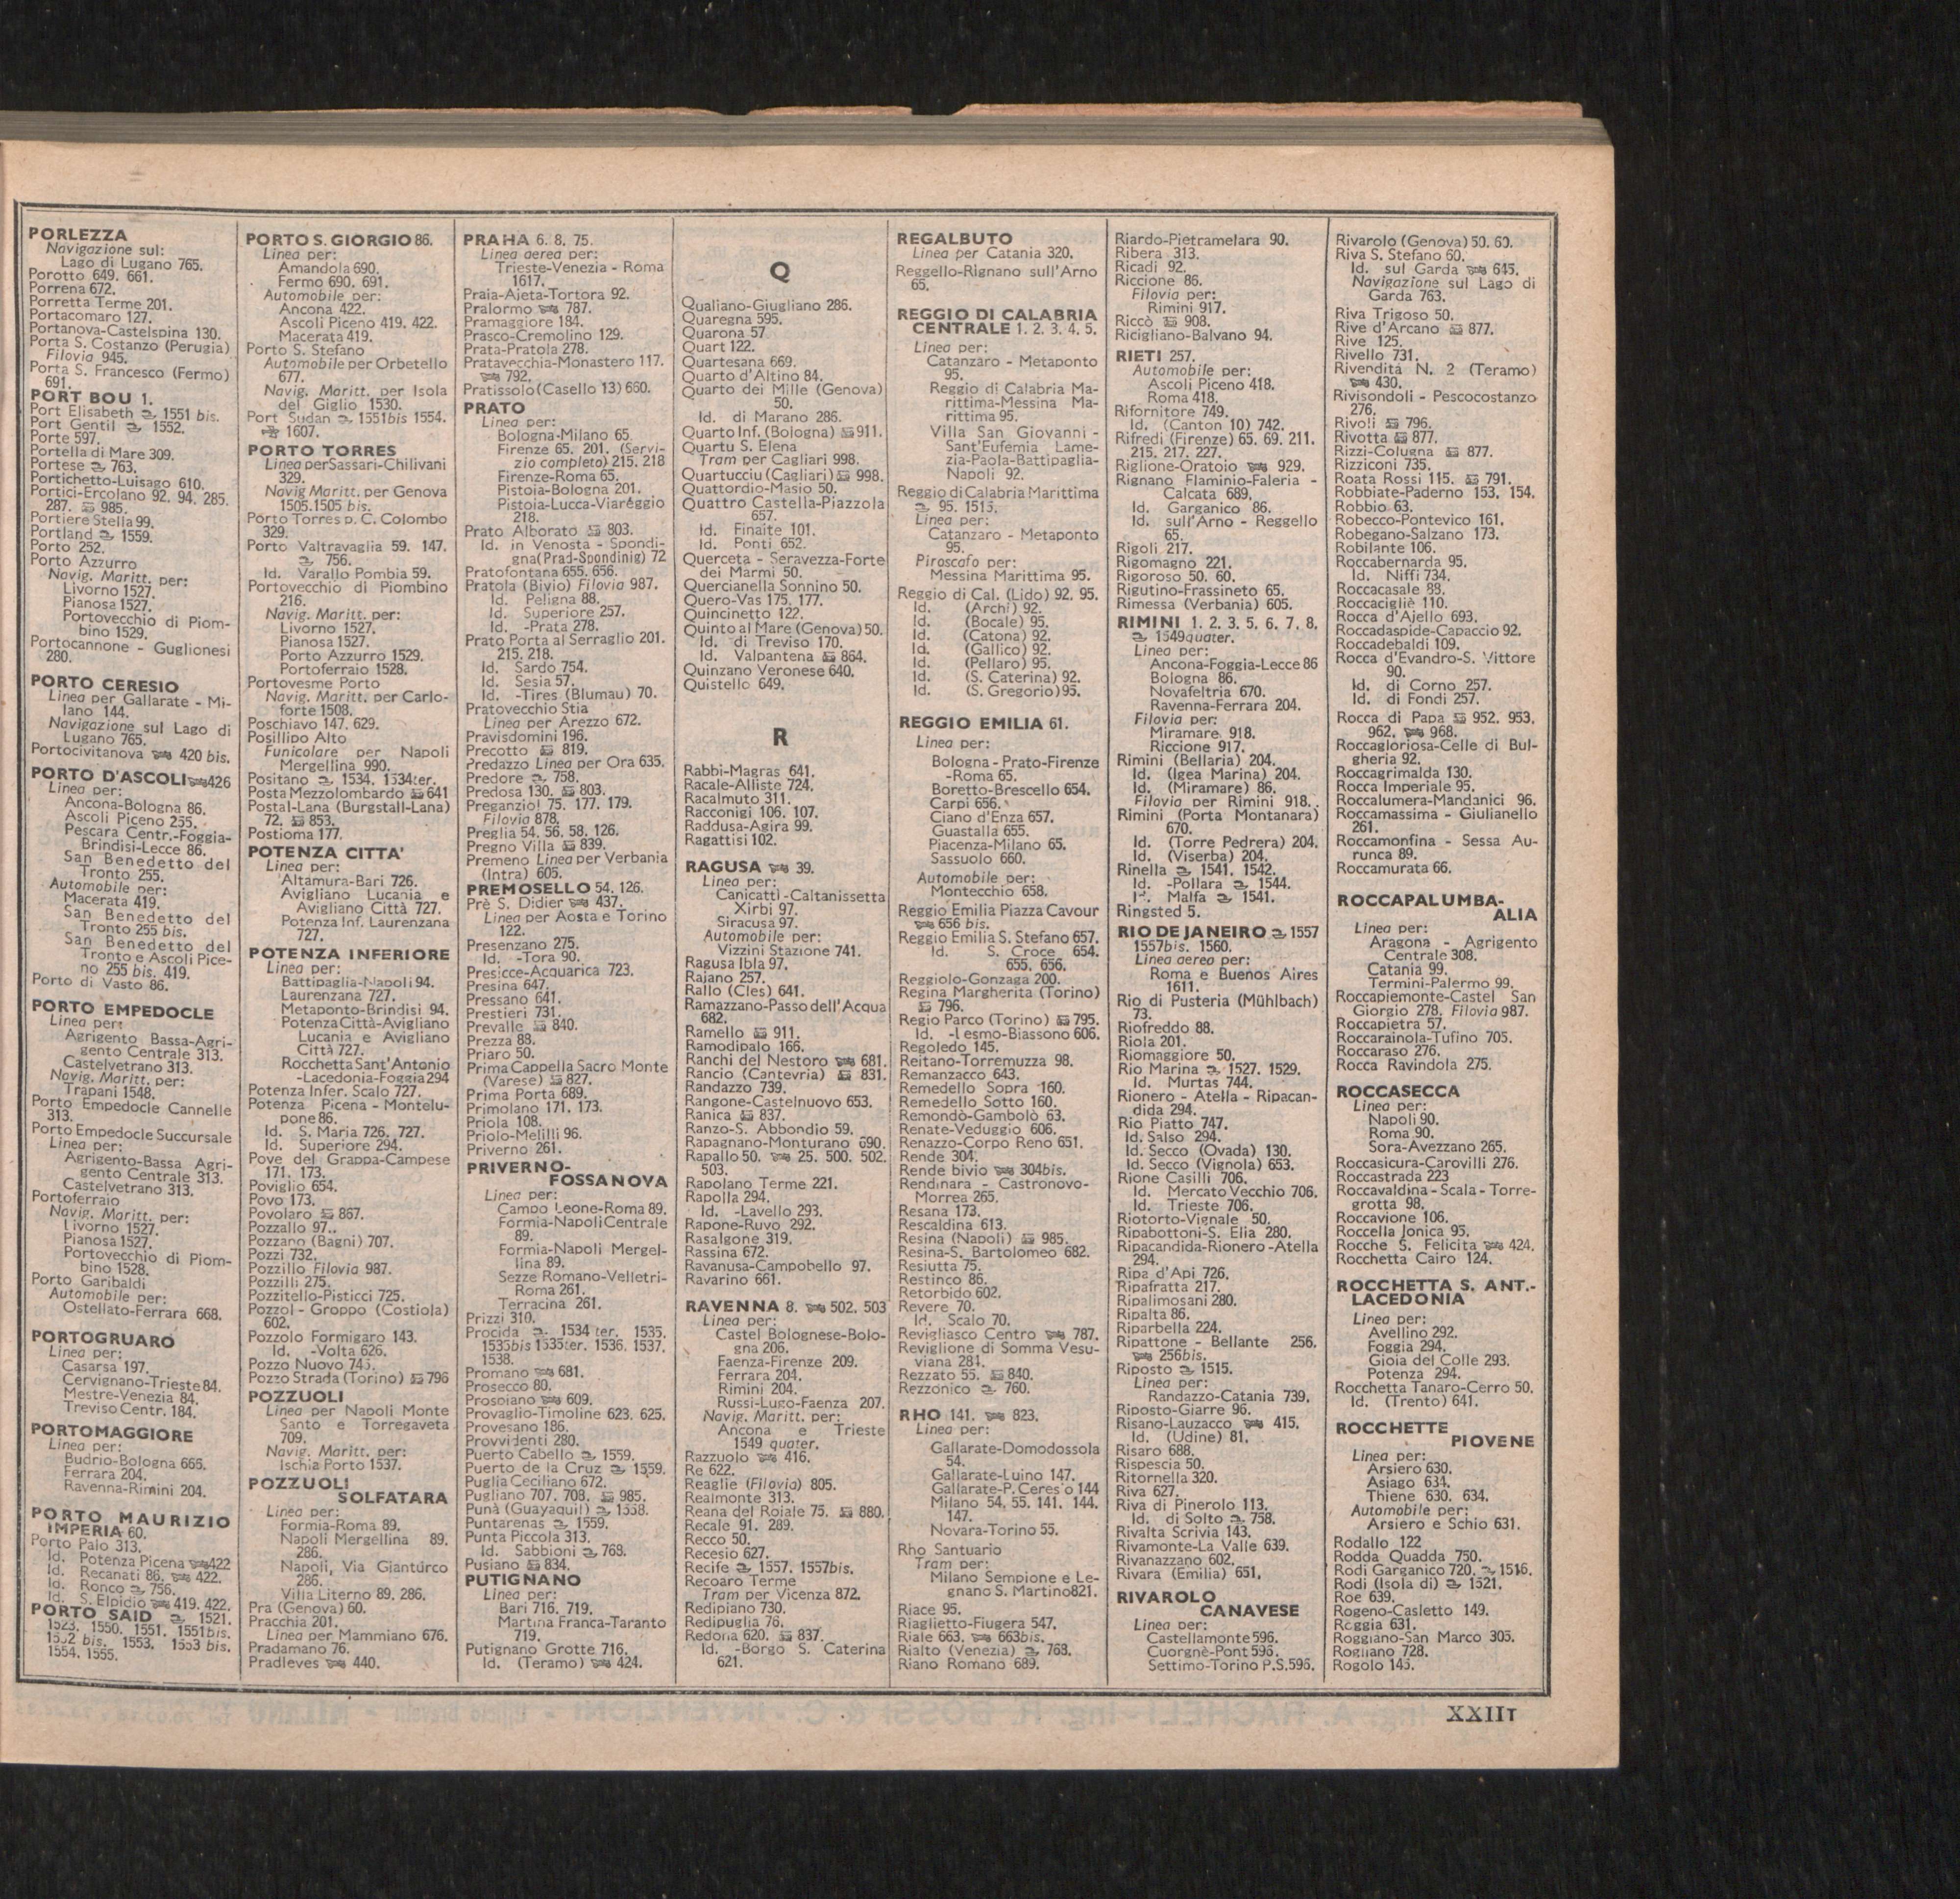 PORLEZZA
Navigazione sul:
Lago di Lugano 765.
Porotto 649. 661.
Porrena 672.
Porretta Terme 201.
Portacomaro 127.
Portanova-Castelspina 130.
Porta S. Costanzo (Perugia)
Filovia 945.
Porta S. Francesco (Fermo)
691.
PORT BOU 1.
Port Elisabeth 1551 bis.
Port Gentil 1552.
Porte 597.
Portella di Mare 309.
Portese 763.
Portichetto-Luisago 610.
Portici-Ercolano 92. 94. 285.
287. 985.
Portiere Stella 99.
Portland 1559.
Porto 252.
Porto Azzurro
Navig. Maritt. per:
Livorno 1527.
Pianosa 1527.
Portovecchio di Piom-
bino 1529.
Portocannone - Guglionesi
280.
PORTO CERESIO
Linea per Gallarate - Mi-
lano 144.
Navigazione sul Lago di
Lugano 765.
Portocivitanova 420 bis.
PORTO D'ASCOLI 426
Linea per:
Ancona-Bologna 86.
Ascoli Piceno 255.
Pescara Centr.-Foggia-
Brindisi-Lecce 86.
San Benedetto del
Tronto 255.
Automobile per:
Macerata 419.
San Benedetto del
Tronto 255 bis.
San Benedetto del
Tronto e Ascoli Pice-
no 255 bis. 419.
Porto di Vasto 86.
PORTO EMPEDOCLE
Linea per:
Agrigento Bassa-Agri-
gento Centrale 313.
Castelvetrano 313.
Navig. Maritt. per:
Trapani 1548.
Porto Empedocle Cannelle
313.
Porto Empedocle Succursale
Linea per:
Agrigento-Bassa Agri-
gento Centrale 313.
Castelvetrano 313.
Portoferraio
Navig. Maritt. per:
Livorno 1527.
Pianosa 1527.
Portovecchio di Piom-
bino 1528.
Porto Garibaldi
Automobile per:
Ostellato-Ferrara 668.
PORTOGRUARO
Linea per:
Casarsa 197.
Cervignano-Trieste 84.
Mestre-Venezia 84.
Treviso Centr. 184.
PORTOMAGGIORE
Linea per:
Budrio-Bologna 665.
Ferrara 204.
Ravenna-Rimini 204.
PORTO MAURIZIO
IMPERIA 60.
Porto Palo 313.
Id. Potenza Picena 422
Id. Recanati 86. 422.
Id. Ronco 756.
Id. S. Elpidio 419. 422.
PORTO SAID 1521.
1523. 1550. 1551. 1551bis.
1552 bis. 1553. 1553 bis.
1554. 1555.
PORTO S. GIORGIO 86.
Linea per:
Amandola 690.
Fermo 690. 691.
Automobile per:
Ancona 422.
Ascoli Piceno 419. 422.
Macerata 419.
Porto S. Stefano
Automobile per Orbetello
677.
Navig. Maritt. per Isola
del Giglio 1530.
Port Sudan 1551bis 1554.
1607.
PORTO TORRES
Linea per Sassari-Chilivani
329.
Navig Maritt. per Genova
1505.1505 bis.
Porto Torres p. C. Colombo
329.
Porto Valtravaglia 59. 147.
756.
Id. Varallo Pombia 59.
Portovecchio di Piombino
216.
Navig. Maritt. per:
Livorno 1527.
Pianosa 1527.
Porto Azzurro 1529.
Portoferraio 1528.
Portovesme Porto
Navig. Maritt. per Carlo-
forte 1508.
Poschiavo 147. 629.
Posillipo Alto
Funicolare per Napoli
Mergellina 990.
Positano 1534. 1534ter.
Posta Mezzolombardo 641
Postal-Lana (Burgstall-Lana)
72. 853.
Postioma 177.
POTENZA CITTA'
Linea per:
Altamura-Bari 726.
Avigliano Lucania e
Avigliano Città 727.
Potenza Inf. Laurenzana
727.
POTENZA INFERIORE
Linea per:
Battipaglia-Napoli 94.
Laurenzana 727.
Metaponto-Brindisi 94.
Potenza Città-Avigliano
Lucania e Avigliano
Città 727.
Rocchetta Sant'Antonio
-Lacedonia-Foggia 294
Potenza Infer. Scalo 727.
Potenza Picena - Montelu-
pone 86.
Id. S. Maria 726. 727.
Id. Superiore 294.
Pove del Grappa-Campese
171. 173.
Poviglio 654.
Povo 173.
Povolaro 867.
Pozzallo 97.
Pozzano (Bagni) 707.
Pozzi 732.
Pozzillo Filovia 987.
Pozzilli 275.
Pozzitello-Pisticci 725.
Pozzol - Groppo (Costiola)
602.
Pozzolo Formigaro 143.
Id. -Volta 626.
Pozzo Nuovo 745.
Pozzo Strada (Torino) 796
POZZUOLI
Linea per Napoli Monte
Santo e Torregaveta
709.
Navig. Maritt. per:
Ischia Porto 1537.
POZZUOLI
SOLFATARA
Linea per:
Formia-Roma 89.
Napoli Mergellina 89.
286.
Napoli, Via Gianturco
286.
Villa Literno 89. 286.
Pra (Genova) 60.
Pracchia 201.
Linea per Mammiano 676.
Pradamano 76.
Pradleves 440.
PRAHA 6. 8. 75.
Linea aerea per:
Trieste-Venezia - Roma
1617.
Praia-Ajeta-Tortora 92.
Pralormo 787.
Pramaggiore 184.
Prasco-Cremolino 129.
Prata-Pratola 278.
Pratavecchia-Monastero 117.
792.
Pratissolo (Casello 13) 660.
PRATO
Linea per:
Bologna-Milano 65.
Firenze 65. 201. (Servi-
zio completo) 215. 218
Firenze-Roma 65.
Pistoia-Bologna 201.
Pistoia-Lucca-Viareggio
218.
Prato Alborato 803.
Id. in Venosta - Spondi-
gna(Prad-Spondinig) 72
Pratofontana 655. 656.
Pratola (Bivio) Filovia 987.
Id. Peligna 88.
Id. Superiore 257.
Id. -Prata 278.
Prato Porta al Serraglio 201.
215. 218.
Id. Sardo 754.
Id. Sesia 57.
Id. -Tires (Blumau) 70.
Pratovecchio Stia
Linea per Arezzo 672.
Pravisdomini 196.
Precotto 819.
Predazzo Linea per Ora 635.
Predore 758.
Predosa 130. 803.
Preganziol 75. 177. 179.
Filovia 878.
Preglia 54. 56. 58. 126.
Pregno Villa 839.
Premeno Linea per Verbania
(Intra) 605.
PREMOSELLO 54. 126.
Prè S. Didier 437.
Linea per Aosta e Torino
122.
Presenzano 275.
Id. -Tora 90.
Presicce-Acquarica 723.
Presina 647.
Pressano 641.
Prestieri 731.
Prevalle 840.
Prezza 88.
Priaro 50.
Prima Cappella Sacro Monte
(Varese) 827.
Prima Porta 689.
Primolano 171. 173.
Priola 108.
Priolo-Melilli 96.
Priverno 261.
PRIVERNO-
FOSSANOVA
Linea per:
Campo Leone-Roma 89.
Formia-Napoli Centrale
89.
Formia-Napoli Mergel-
lina 89.
Sezze Romano-Velletri-
Roma 261.
Terracina 261.
Prizzi 310.
Procida 1534 ter. 1535.
1535bis 1535ter. 1536. 1537.
1538.
Promano 681.
Prosecco 80.
Prospiano 609.
Provaglio-Timoline 623. 625.
Provesano 186.
Provvidenti 280.
Puerto Cabello 1559.
Puerto de la Cruz 1559.
Puglia Ceciliano 672.
Pugliano 707. 708. 985.
Punà (Guayaquil) 1558.
Puntarenas 1559.
Punta Piccola 313.
Id. Sabbioni 768.
Pusiano 834.
PUTIGNANO
Linea per:
Bari 716. 719.
Martina Franca-Taranto
719.
Putignano Grotte 716.
Id. (Teramo) 424.
Q
Qualiano-Giugliano 286.
Quaregna 595.
Quarona 57
Quart 122.
Quartesana 669.
Quarto d'Altino 84.
Quarto dei Mille (Genova)
50.
Id. di Marano 286.
Quarto Inf. (Bologna) 911.
Quartu S. Elena
Tram per Cagliari 998.
Quartucciu (Cagliari) 998.
Quattordio-Masio 50.
Quattro Castella-Piazzola
657.
Id. Finaite 101.
Id. Ponti 652.
Querceta - Seravezza-Forte
dei Marmi 50.
Quercianella Sonnino 50.
Quero-Vas 175. 177.
Quincinetto 122.
Quinto al Mare (Genova) 50.
Id. di Treviso 170.
Id. Valpantena 864.
Quinzano Veronese 640.
Quistello 649.
R
Rabbi-Magras 641.
Racale-Alliste 724.
Racalmuto 311.
Racconigi 106. 107.
Raddusa-Agira 99.
Ragattisi 102.
RAGUSA 39.
Linea per:
Canicattì-Caltanissetta
Xirbi 97.
Siracusa 97.
Automobile per:
Vizzini Stazione 741.
Ragusa Ibla 97.
Rajano 257.
Rallo (Cles) 641.
Ramazzano-Passo dell'Acqua
682.
Ramello 911.
Ramodipalo 166.
Ranchi del Nestoro 681.
Rancio (Cantevria) 831.
Randazzo 739.
Rangone-Castelnuovo 653.
Ranica 837.
Ranzo-S. Abbondio 59.
Rapagnano-Monturano 690.
Rapallo 50. 25. 500. 502.
503.
Rapolano Terme 221.
Rapolla 294.
Id. -Lavello 293.
Rapone-Ruvo 292.
Rasalgone 319.
Rassina 672.
Ravanusa-Campobello 97.
Ravarino 661.
RAVENNA 8. 502. 503
Linea per:
Castel Bolognese-Bolo-
gna 206.
Faenza-Firenze 209.
Ferrara 204.
Rimini 204.
Russi-Lugo-Faenza 207.
Navig. Maritt. per:
Ancona e Trieste
1549 quater.
Razzuolo 416.
Re 622.
Reaglie (Filovia) 805.
Realmonte 313.
Reana del Roiale 75. 880.
Recale 91. 289.
Recco 50.
Recesio 627.
Recife 1557. 1557bis.
Recoaro Terme
Tram per Vicenza 872.
Redipiano 730.
Redipuglia 76.
Redona 620. 837.
Id. -Borgo S. Caterina
621.
REGALBUTO
Linea per Catania 320.
Reggello-Rignano sull'Arno
65.
REGGIO DI CALABRIA
CENTRALE 1. 2. 3. 4. 5.
Linea per:
Catanzaro - Metaponto
95.
Reggio di Calabria Ma-
rittima-Messina Ma-
rittima 95.
Villa San Giovanni -
Sant'Eufemia Lame-
zia-Paola-Battipaglia-
Napoli 92.
Reggio di Calabria Marittima
95. 1515.
Linea per:
Catanzaro - Metaponto
95.
Piroscafo per:
Messina Marittima 95.
Reggio di Cal. (Lido) 92. 95.
Id. (Archi) 92.
Id. (Bocale) 95.
Id. (Catona) 92.
Id. (Gallico) 92.
Id. (Pellaro) 95.
Id. (S. Caterina) 92.
Id. (S. Gregorio) 95.
REGGIO EMILIA 61.
Linea per:
Bologna - Prato-Firenze
-Roma 65.
Boretto-Brescello 654.
Carpi 656.
Ciano d'Enza 657.
Guastalla 655.
Piacenza-Milano 65.
Sassuolo 660.
Automobile per:
Montecchio 658.
Reggio Emilia Piazza Cavour
656 bis.
Reggio Emilia S. Stefano 657.
Id. S. Croce 654.
655. 656.
Reggiolo-Gonzaga 200.
Regina Margherita (Torino)
796.
Regio Parco (Torino) 795.
Id. -Lesmo-Biassono 606.
Regoledo 145.
Reitano-Torremuzza 98.
Remanzacco 643.
Remedello Sopra 160.
Remedello Sotto 160.
Remondò-Gambolò 63.
Renate-Veduggio 606.
Renazzo-Corpo Reno 651.
Rende 304.
Rende bivio 304bis.
Rendinara - Castronovo-
Morrea 265.
Resana 173.
Rescaldina 613.
Resina (Napoli) 985.
Resina-S. Bartolomeo 682.
Resiutta 75.
Restinco 86.
Retorbido 602.
Revere 70.
Id. Scalo 70.
Revigliasco Centro 787.
Reviglione di Somma Vesu-
viana 281.
Rezzato 55. 840.
Rezzonico 760.
RHO 141. 823.
Linea per:
Gallarate-Domodossola
54.
Gallarate-Luino 147.
Gallarate-P. Ceresio 144
Milano 54. 55. 141. 144.
147.
Novara-Torino 55.
Rho Santuario
Tram per:
Milano Sempione e Le-
gnano S. Martino 821.
Riace 95.
Riaglietto-Fiugera 547.
Riale 663. 663bis.
Rialto (Venezia) 768.
Riano Romano 689.
Riardo-Pietramelara 90.
Ribera 313.
Ricadi 92.
Riccione 86.
Filovia per:
Rimini 917.
Riccò 908.
Ricigliano-Balvano 94.
RIETI 257.
Automobile per:
Ascoli Piceno 418.
Roma 418.
Rifornitore 749.
Id. (Canton 10) 742.
Rifredi (Firenze) 65. 69. 211.
215. 217. 227.
Riglione-Oratoio 929.
Rignano Flaminio-Faleria -
Calcata 689.
Id. Garganico 86.
Id. sull'Arno - Reggello
65.
Rigoli 217.
Rigomagno 221.
Rigoroso 50. 60.
Rigutino-Frassineto 65.
Rimessa (Verbania) 605.
RIMINI 1. 2. 3. 5. 6. 7. 8.
1549quater.
Linea per:
Ancona-Foggia-Lecce 86
Bologna 86.
Novafeltria 670.
Ravenna-Ferrara 204.
Filovia per:
Miramare 918.
Riccione 917.
Rimini (Bellaria) 204.
Id. (Igea Marina) 204.
Id. (Miramare) 86.
Filovia per Rimini 918.
Rimini (Porta Montanara)
670.
Id. (Torre Pedrera) 204.
Id. (Viserba) 204.
Rinella 1541. 1542.
Id. -Pollara 1544.
Id. Malfa 1541.
Ringsted 5.
RIO DE JANEIRO 1557
1557bis. 1560.
Linea aerea per:
Roma e Buenos Aires
1611.
Rio di Pusteria (Mühlbach)
73.
Riofreddo 88.
Riola 201.
Riomaggiore 50.
Rio Marina 1527. 1529.
Id. Murtas 744.
Rionero - Atella - Ripacan-
dida 294.
Rio Piatto 747.
Id. Salso 294.
Id. Secco (Ovada) 130.
Id. Secco (Vignola) 653.
Rione Casilli 706.
Id. Mercato Vecchio 706.
Id. Trieste 706.
Riotorto-Vignale 50.
Ripabottoni-S. Elia 280.
Ripacandida-Rionero-Atella
294.
Ripa d'Api 726.
Ripafratta 217.
Ripalimosani 280.
Ripalta 86.
Riparbella 224.
Ripattone - Bellante 256.
256bis.
Riposto 1515.
Linea per:
Randazzo-Catania 739.
Riposto-Giarre 96.
Risano-Lauzacco 415.
Id. (Udine) 81.
Risaro 688.
Rispescia 50.
Ritornella 320.
Riva 627.
Riva di Pinerolo 113.
Id. di Solto 758.
Rivalta Scrivia 143.
Rivamonte-La Valle 639.
Rivanazzano 602.
Rivara (Emilia) 651.
RIVAROLO
CANAVESE
Linea per:
Castellamonte 596.
Cuorgnè-Pont 596.
Settimo-Torino P.S.596.
Rivarolo (Genova) 50. 60.
Riva S. Stefano 60.
Id. sul Garda 645.
Navigazione sul Lago di
Garda 763.
Riva Trigoso 50.
Rive d'Arcano 877.
Rive 125.
Rivello 731.
Rivendita N. 2 (Teramo)
430.
Rivisondoli - Pescocostanzo
276.
Rivoli 796.
Rivotta 877.
Rizzi-Colugna 877.
Rizziconi 735.
Roata Rossi 115. 791.
Robbiate-Paderno 153. 154.
Robbio 63.
Robecco-Pontevico 161.
Robegano-Salzano 173.
Robilante 106.
Roccabernarda 95.
Id. Niffi 734.
Roccacasale 88.
Roccacigliè 110.
Rocca d'Ajello 693.
Roccadaspide-Capaccio 92.
Roccadebaldi 109.
Rocca d'Evandro-S. Vittore
90.
Id. di Corno 257.
Id. di Fondi 257.
Rocca di Papa 952. 953.
962. 968.
Roccagloriosa-Celle di Bul-
gheria 92.
Roccagrimalda 130.
Rocca Imperiale 95.
Roccalumera-Mandanici 96.
Roccamassima - Giulianello
261.
Roccamonfina - Sessa Au-
runca 89.
Roccamurata 66.
ROCCAPALUMBA-
ALIA
Linea per:
Aragona - Agrigento
Centrale 308.
Catania 99.
Termini-Palermo 99.
Roccapiemonte-Castel San
Giorgio 278. Filovia 987.
Roccapietra 57.
Roccarainola-Tufino 705.
Roccaraso 276.
Rocca Ravindola 275.
ROCCASECCA
Linea per:
Napoli 90.
Roma 90.
Sora-Avezzano 265.
Roccasicura-Carovilli 276.
Roccastrada 223
Roccavaldina - Scala - Torre-
grotta 98.
Roccavione 106.
Roccella Jonica 95.
Rocche S. Felicita 424.
Rocchetta Cairo 124.
ROCCHETTA S. ANT.-
LACEDONIA
Linea per:
Avellino 292.
Foggia 294.
Gioia del Colle 293.
Potenza 294.
Rocchetta Tanaro-Cerro 50.
Id. (Trento) 641.
ROCCHETTE
PIOVENE
Linea per:
Arsiero 630.
Asiago 634.
Thiene 630. 634.
Automobile per:
Arsiero e Schio 631.
Rodallo 122
Rodda Quadda 750.
Rodi Garganico 720. 1516.
Rodi (Isola di) 1521.
Roe 639.
Rogeno-Casletto 149.
Roggia 631.
Roggiano-San Marco 305.
Rogliano 728.
Rogolo 145.
XXIIT